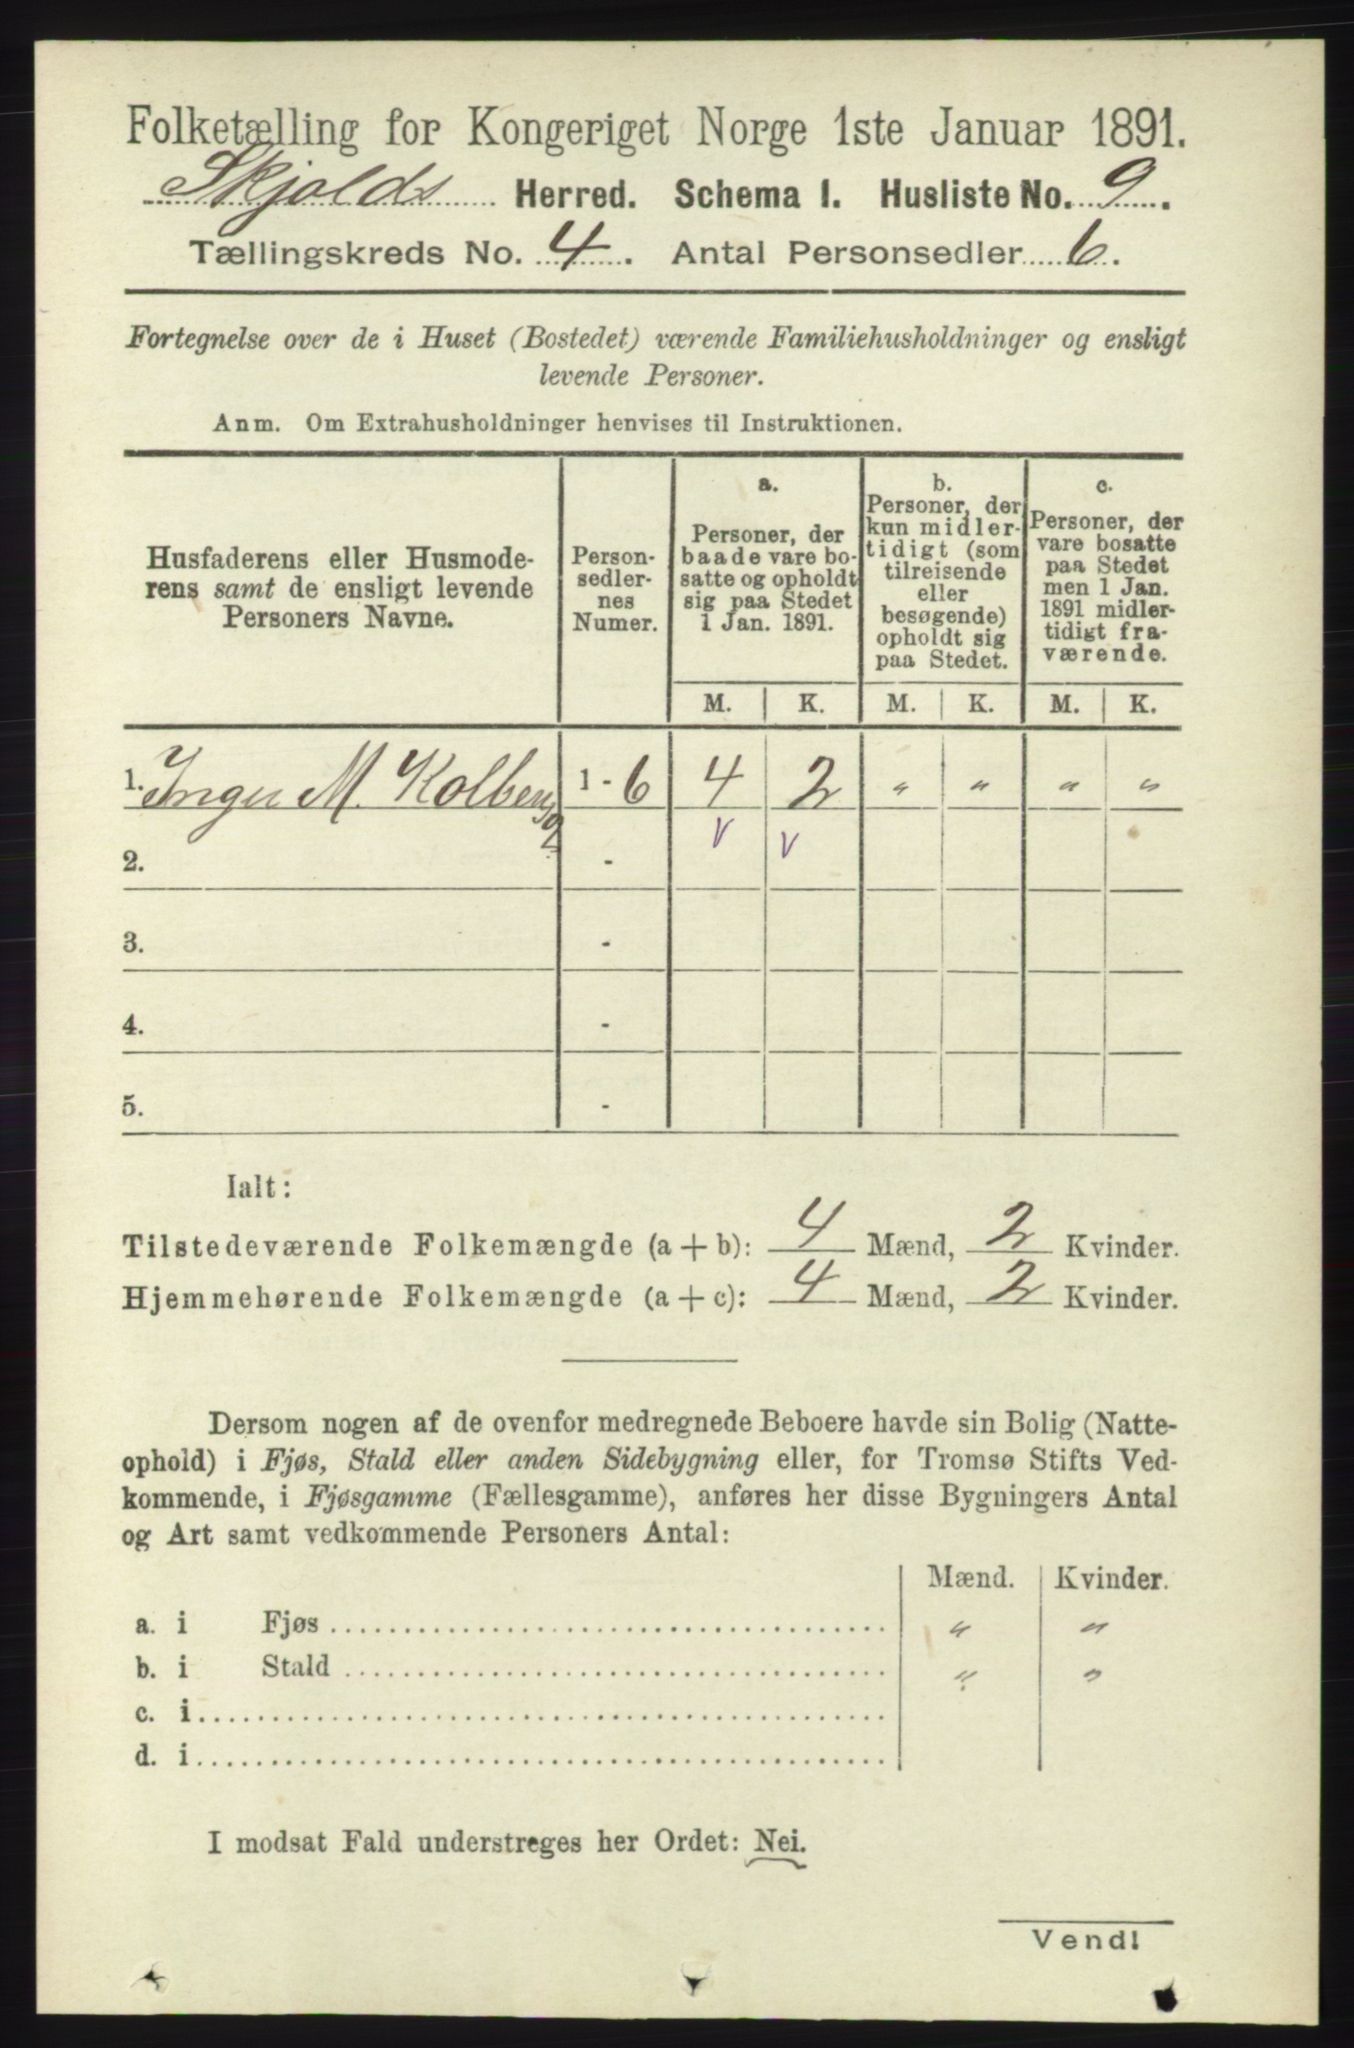 Folketælling for Kongeriget Norge 1ste Januar 1891.
Skjolds Herred. Schema I. Husliste No. 9.
Tællingskreds No. 4. Antal Personsedler 6.
Fortegnelse over de i Huset (Bostedet) værende Familiehusholdninger og ensligt
levende Personer.
Anm. Om Extrahusholdninger henvises til Instruktionen.
Husfaderens eller Husmode-
rens samt de ensligt levende
Personers Navne.
Person-
sedler-
nes
Numer.
a.
Personer, der
baade vare bo-
satte og opholdt
sig paa Stedet
1 Jan. 1891.
b.
Personer, der
kun midler-
tidigt (som
tilreisende
eller
besøgende)
opholdt sig
paa Stedet.
c.
Personer, der
vare bosatte
paa Stedet
men 1 Jan.
1891 midler-
tidigt fra-
værende.
M. K. M. K. M. K.
1. Inger M. Kolbens 1 - 6 4 2 " " " "
v v
2. -
3. -
4. -
5. -
Ialt:
Tilstedeværende Folkemængde (a + b): 4 Mænd, 2 Kvinder.
Hjemmehørende Folkemængde (a + c): 4 Mænd, 2 Kvinder.
Dersom nogen af de ovenfor medregnede Beboere havde sin Bolig (Natte-
ophold) i Fjøs, Stald eller anden Sidebygning eller, for Tromsø Stifts Ved-
kommende, i Fjøsgamme (Fællesgamme), anføres her disse Bygningers Antal
og Art samt vedkommende Personers Antal:
Mænd. Kvinder.
a. i Fjøs " "
b. i Stald " "
c. i
d. i
I modsat Fald understreges her Ordet: Nei.
Vend!